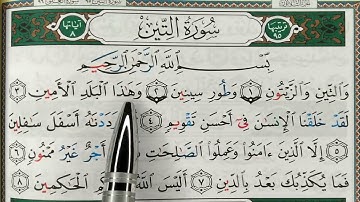 ترتيبها ٩٥ سُورَةُ التِّينِ آياتها ٨
بِسْمِ اللَّهِ الرَّحْمَٰنِ الرَّحِيمِ
وَالتِّينِ وَالزَّيْتُونِ ١ وَطُورِ سِينِينَ ٢ وَهَٰذَا الْبَلَدِ الْأَمِينِ ٣
لَقَدْ خَلَقْنَا الْإِنسَٰنَ فِي أَحْسَنِ تَقْوِيمٍ ٤ رَدَدْنَٰهُ أَسْفَلَ سَٰفِلِينَ
٥ إِلَّا الَّذِينَ ءَامَنُوا وَعَمِلُوا الصَّٰلِحَٰتِ أَجْرٌ غَيْرُ مَمْنُونٍ ٦
فَمَا يُكَذِّبُكَ بَعْدُ بِالدِّينِ ٧ أَلَيْسَ اللَّهُ الْحَٰكِمِينَ ٨